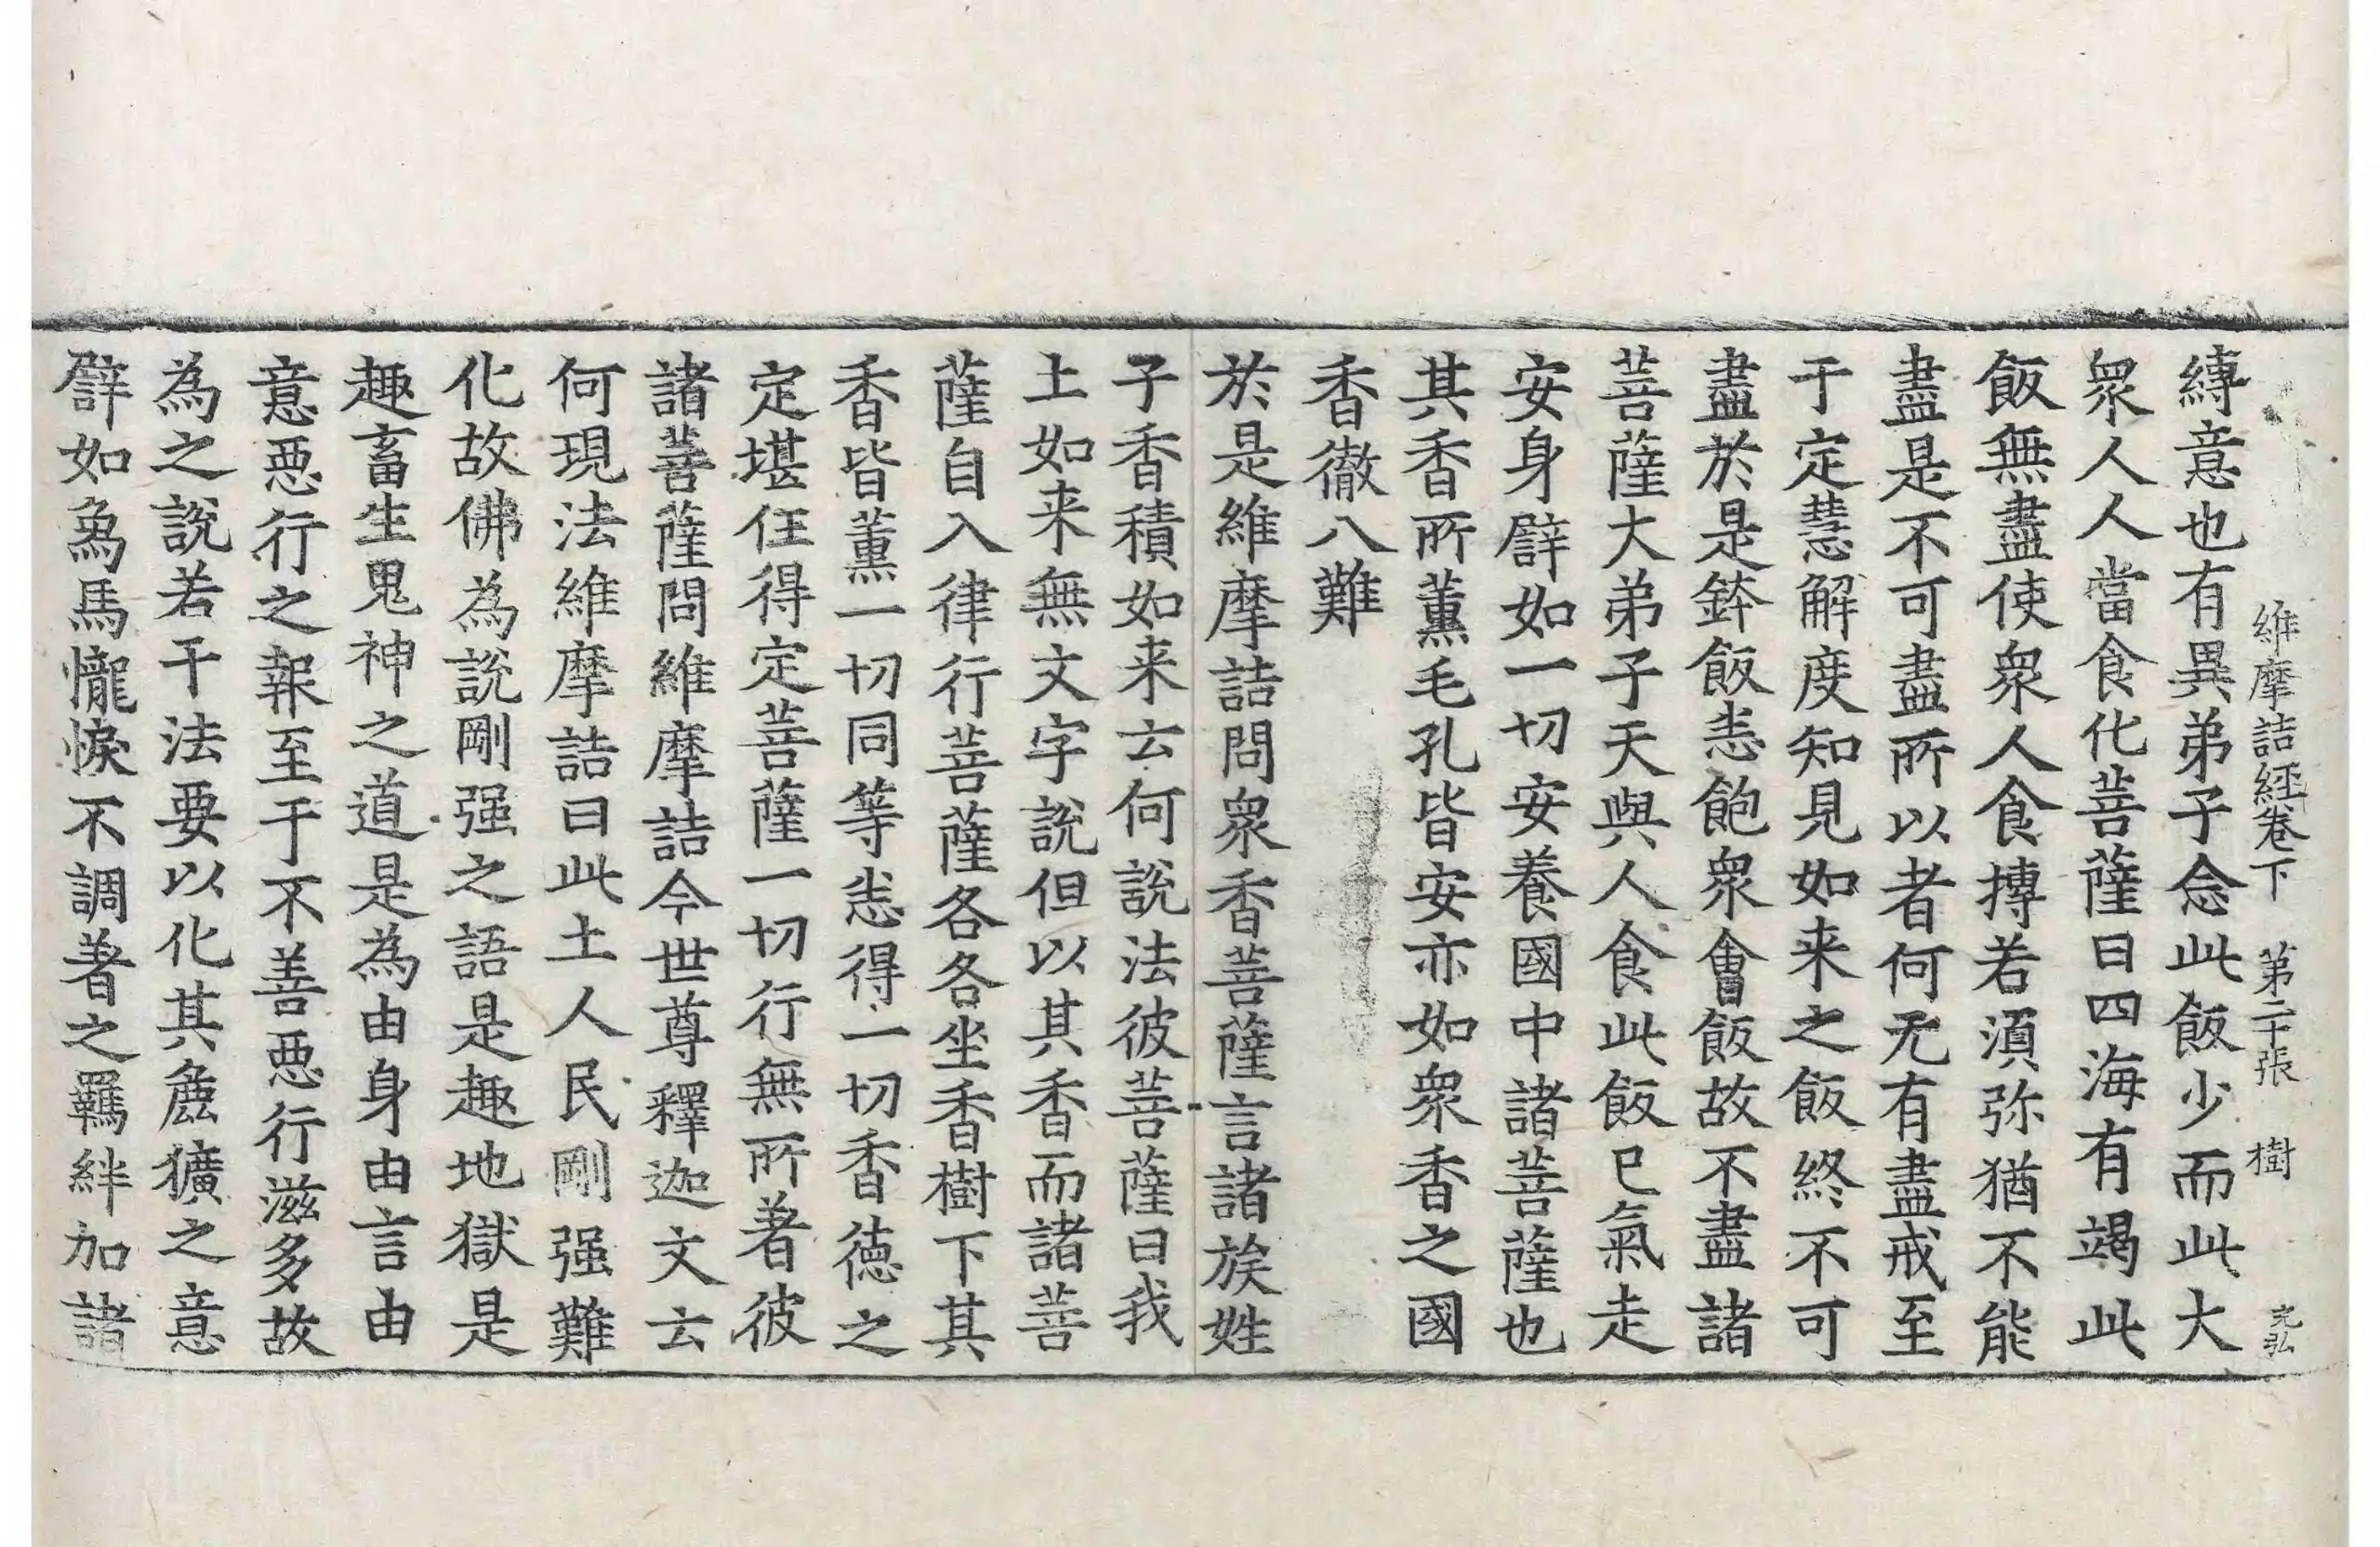 維摩詰經卷下 第二十張 樹 光弘
縛意也有異弟子念此飯少而此大
衆人人當食化菩薩曰四海有竭此
飯無盡使衆人食摶若湏弥猶不能
盡是不可盡所以者何无有盡戒至
于定慧解度知見如来之飯終不可
盡於是鉢飯恚飽衆會飯故不盡諸
菩薩大弟子天與人食此飯已氣走
安身譬如一切安養國中諸菩薩也
其香所薰毛孔皆安亦如衆香之國
香徹八難
於是維摩詰問衆香菩薩言諸族姓
子香積如来云何說法彼菩薩曰我
土如来無文字說但以其香而諸菩
薩自入律行菩薩各各坐香樹下其
香皆薰一切同等恚得一切香徳之
定堪任得定菩薩一切行無所著彼
諸菩薩問維摩詰今世尊釋迦文云
何現法維摩詰曰此土人民剛强難
化故佛為說剛强之語是趣地獄是
趣畜生鬼神之道是為由身由言由
意惡行之報至于不善惡行滋多故
為之說若干法要以化其麁獷之意
譬如象馬㦕悷不調著之羈絆加諸